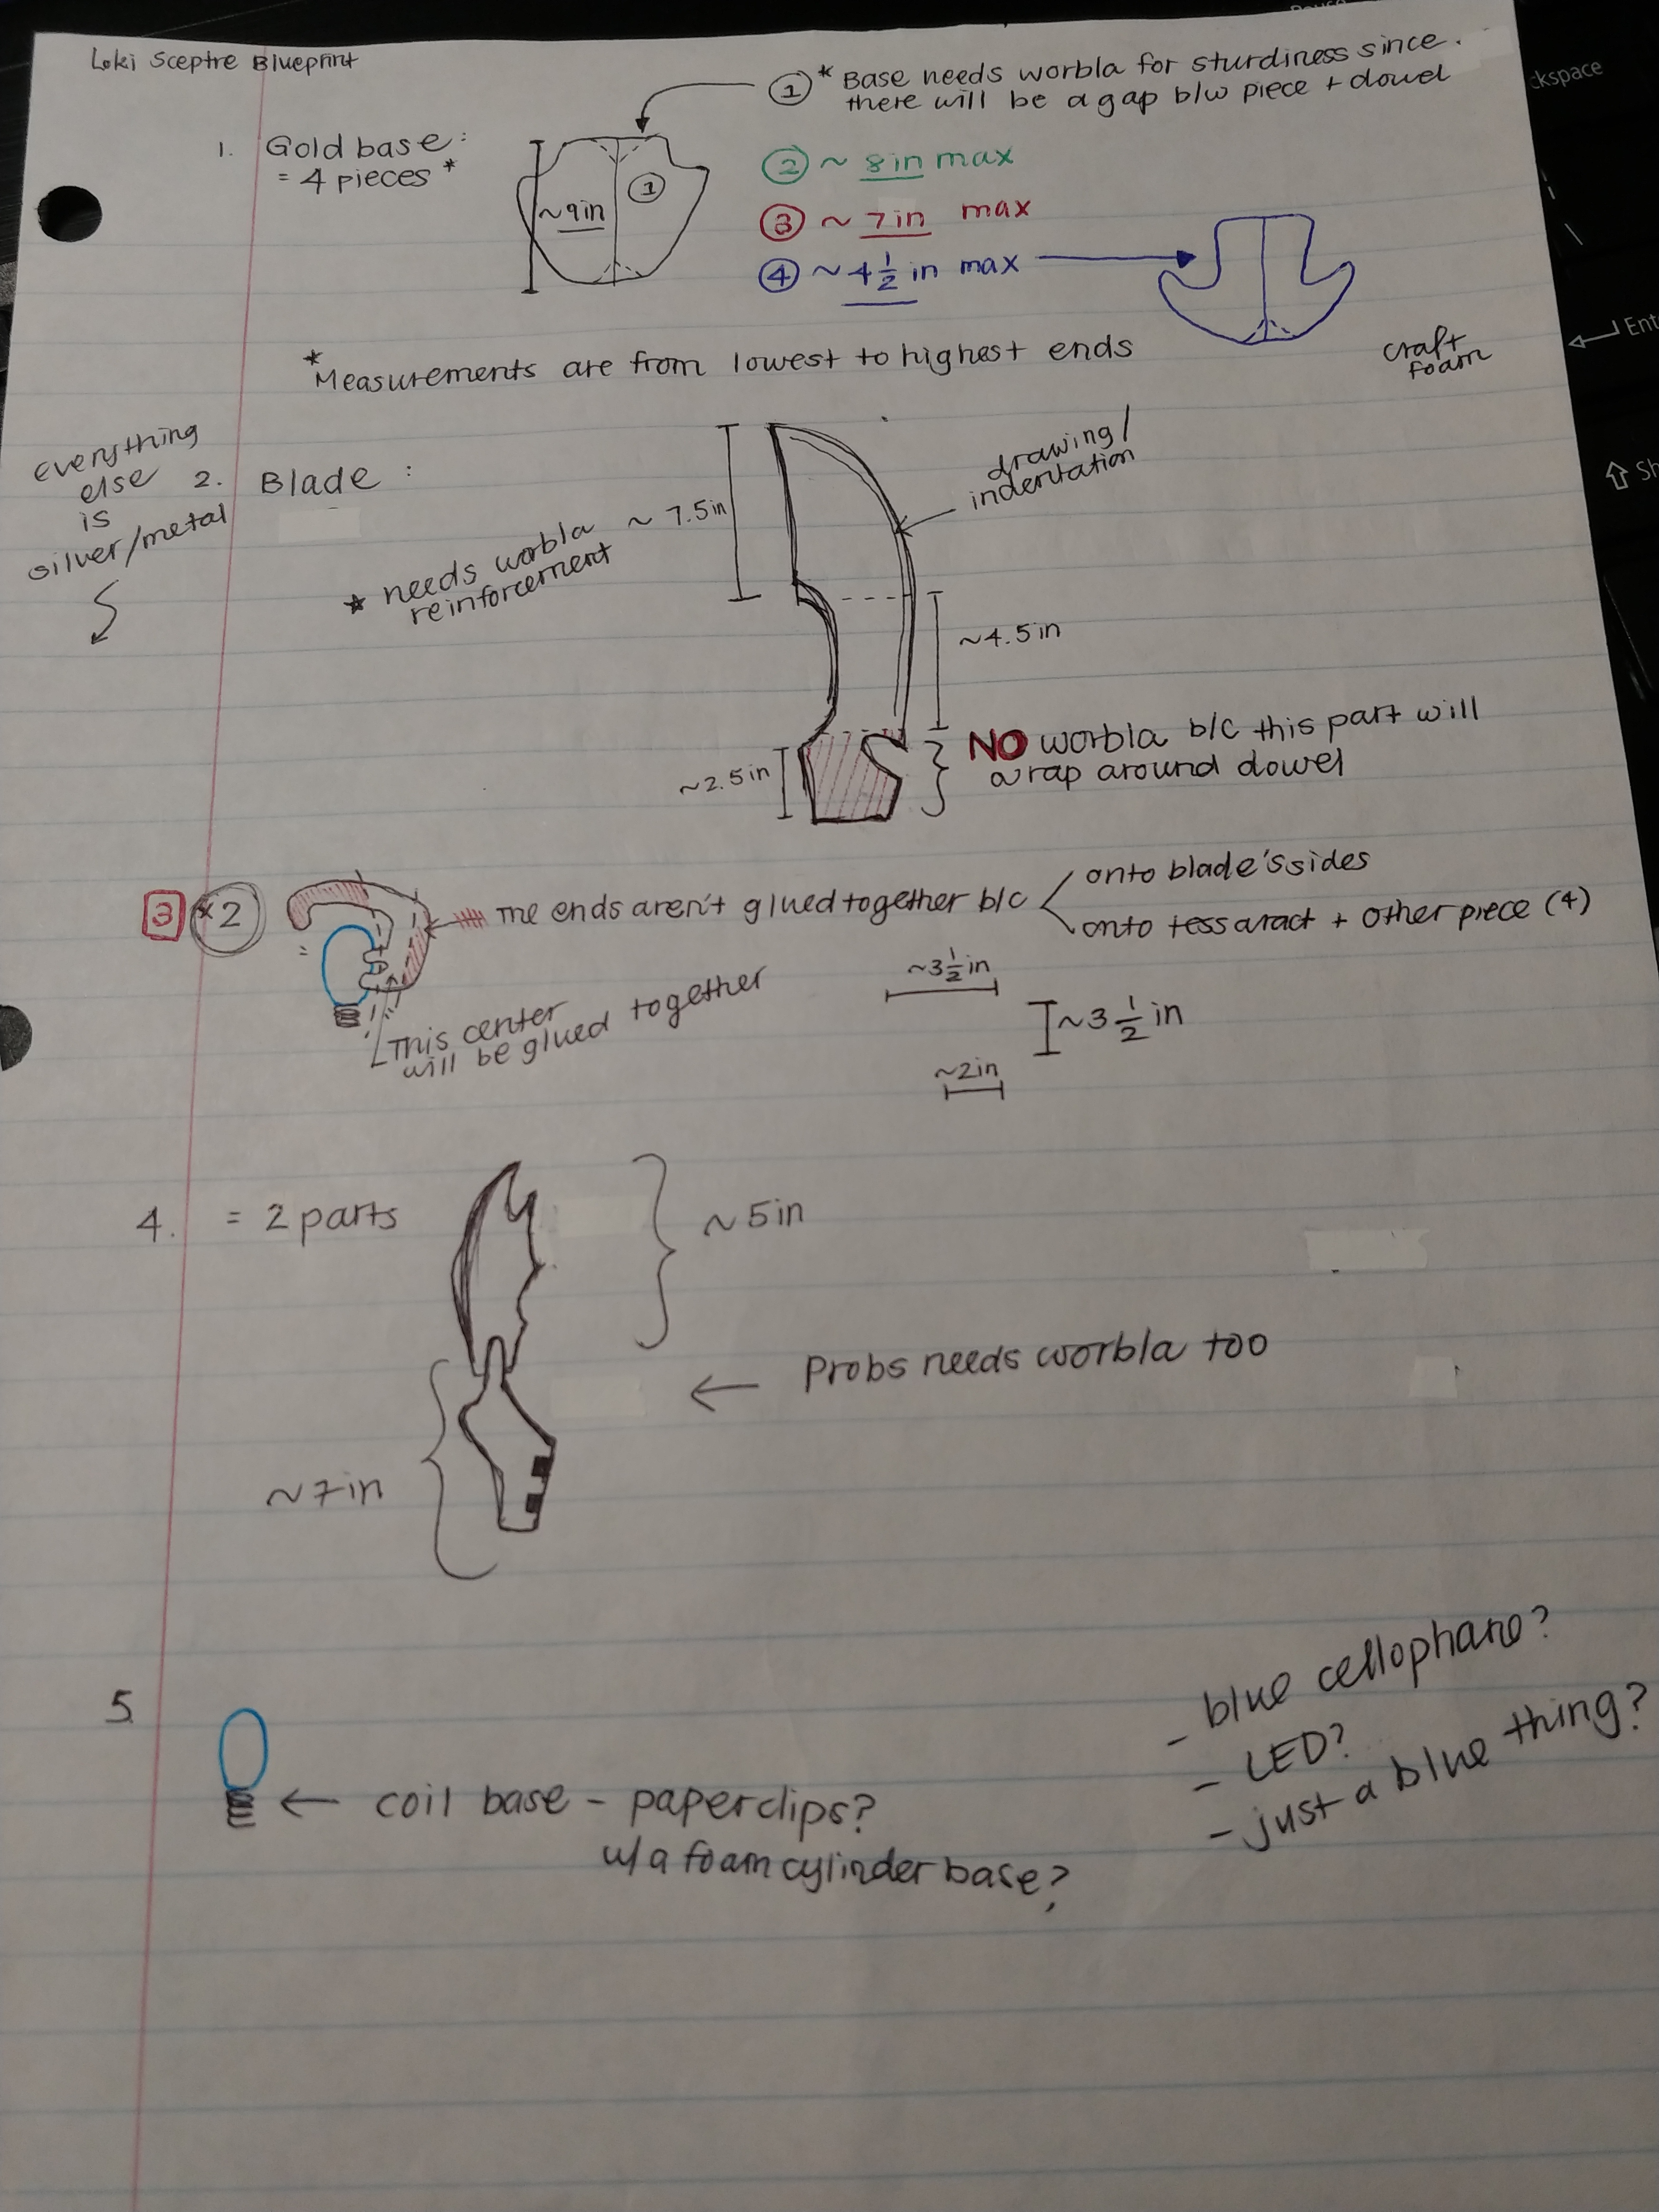 Loki Sceptre Blueprint
① * Base needs worbla for sturdiness since
there will be a gap b/w piece + dowel
1. Gold base:
= 4 pieces *
~9in
①
② ~ 8in max
③ ~ 7in max
④ ~ 4 1/2 in max
* Measurements are from lowest to highest ends
craft
foam
everything
else
is
silver/metal
2. Blade:
* needs worbla
reinforcement
~ 7.5in
drawing/
indentation
~4.5in
~2.5in
NO worbla b/c this part will
wrap around dowel
3 *2
=
The ends aren't glued together b/c
onto blade's sides
onto tessaract + other piece (4)
This center
will be glued together
~3 1/2 in
~3 1/2 in
~2in
4. = 2 parts
~5in
← Probs needs worbla too
~7in
5.
← coil base - paperclips?
w/ a foam cylinder base?
- blue cellophane?
- LED?
- just a blue thing?
ckspace
Ent
Sh